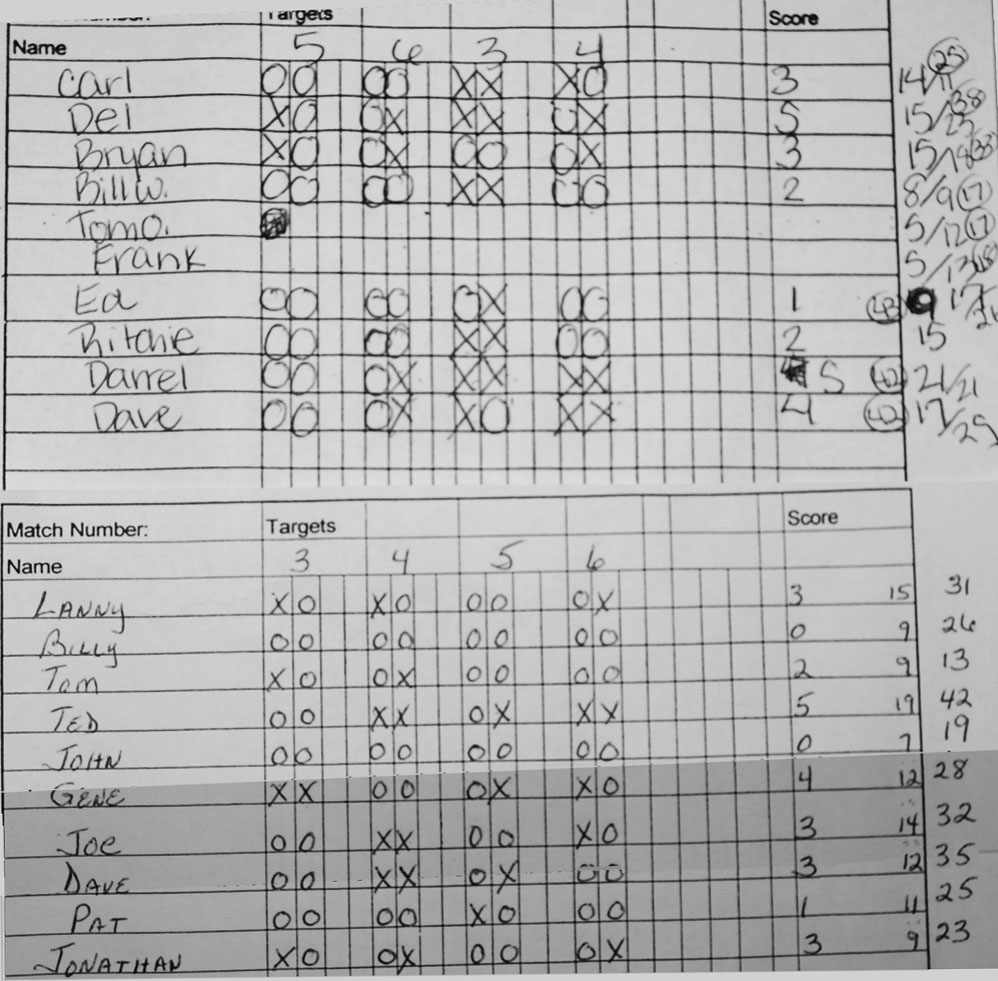 Number: Targets Score
Name 5 6 3 4
Carl OO OO XX XO 3 14/11 25
Del XO OX XX OX 5 15/23 38
Bryan XO OX OO OX 3 15/18 33
Bill W. OO OO XX OO 2 8/9 17
Tom O. 5/12 17
Frank 5/13 18
Ed OO OO OX OO 1 43 9
Ritchie OO OO XX OO 2 15
Darrel OO OX XX XX 5 42 21/21
Dave OO OX XO XX 4 42 17/25
Match Number: Targets Score
Name 3 4 5 6
LANNY XO XO OO OX 3 15 31
BILLY OO OO OO OO 0 9 26
Tom XO OX OO OO 2 9 13
TED OO XX OX XX 5 19 42
JOHN OO OO OO OO 0 7 19
GENE XX OO OX XO 4 12 28
JOE OO XX OO XO 3 14 32
DAVE OO XX OX OO 3 12 35
PAT OO OO XO OO 1 11 25
JONATHAN XO OX OO OX 3 9 23